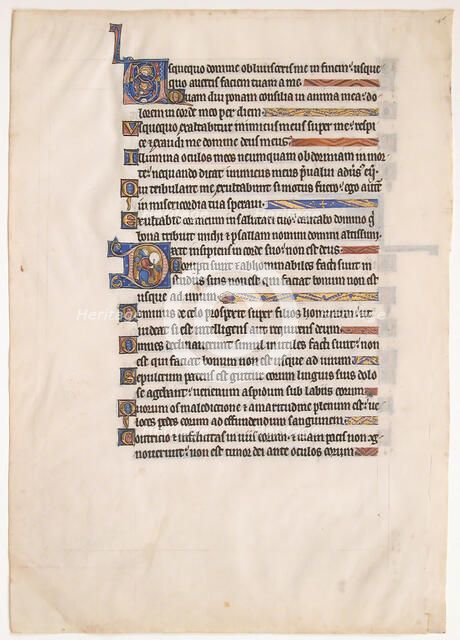 Usquequo domine oblivisceris me in finem: usque
quo avertis faciem tuam a me
Quam diu ponam consilia in anima mea: do
lorem in corde meo per diem
Usquequo exaltabitur inimicus meus super me: respi
ce & exaudi me domine deus meus
Illumina oculos meos ne unquam obdormiam in mor
te: nequando dicat inimicus meus
Qui tribulant me exultabunt si motus fuero: ego
in misericordia tua speravi
Exultabit cor meum in salutari tuo: cantabo domino
bona tribuit & psallam nomini domini altissimi
Dixit insipiens in corde suo: non est deus
Corrupti sunt & abhominabiles facti sunt in
studiis suis non est qui faciat bonum non est
usque ad unum
Dominus de celo prospexit super filios hominum: ut
videat si est intelligens aut requirens deum
Omnes declinaverunt simul inutiles facti sunt: non
est qui faciat bonum non est usque ad unum
Sepulcrum patens est guttur eorum linguis suis dolo
se agebant: venenum aspidum sub labiis eorum
Quorum os maledictione & amaritudine plenum est: ve
loces pedes eorum ad effundendum sanguinem
Contritio & infelicitas in viis eorum: & viam pacis non
noverunt: non est timor dei ante oculos eorum